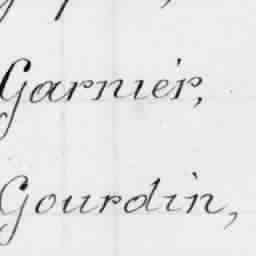 Garnier,
Gourdin,